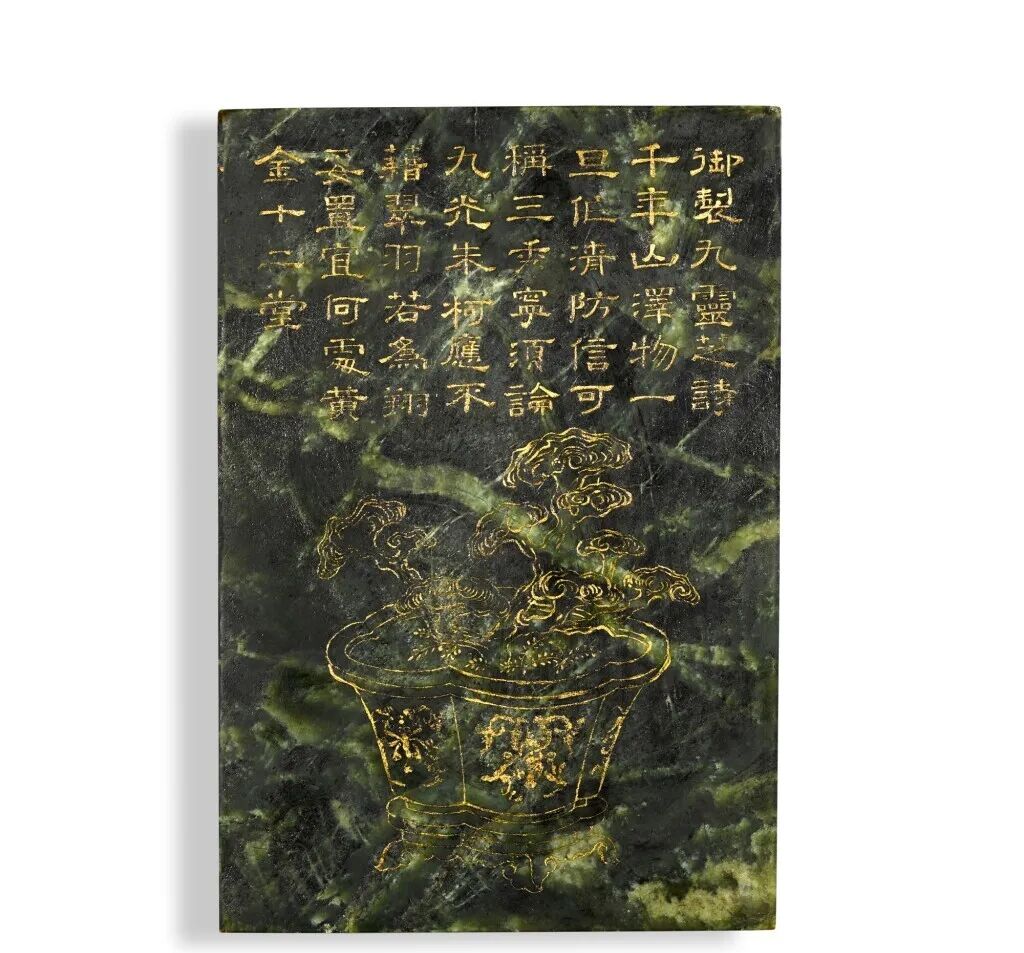 御製九靈芝詩
千年山澤物一
旦清防信可
稱三秀寧須論
九光朱柯應不
藉翠羽若為翔
妥置宜何處黃
金十二堂